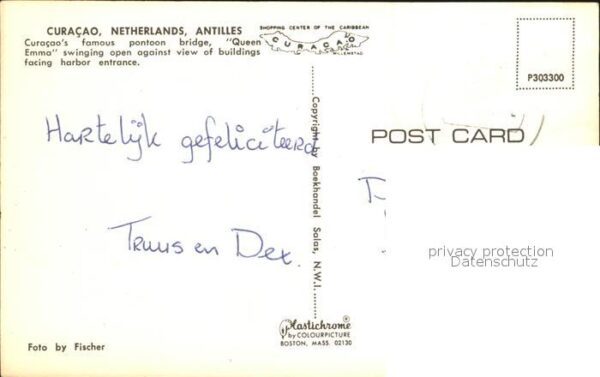 CURAÇAO, NETHERLANDS, ANTILLES
Curaçao's famous pontoon bridge, "Queen
Emma" swinging open against view of buildings
facing harbor entrance.
SHOPPING CENTER OF THE CARIBBEAN
CURAÇAO
WILLEMSTAD
P303300
Hartelijk gefeliciteerd
Truus en Dex.
Copyright by Boekhandel Salas, N.W.I.
POST CARD
privacy protection
Datenschutz
Plastichrome®
by COLOURPICTURE
BOSTON, MASS. 02130
Foto by Fischer